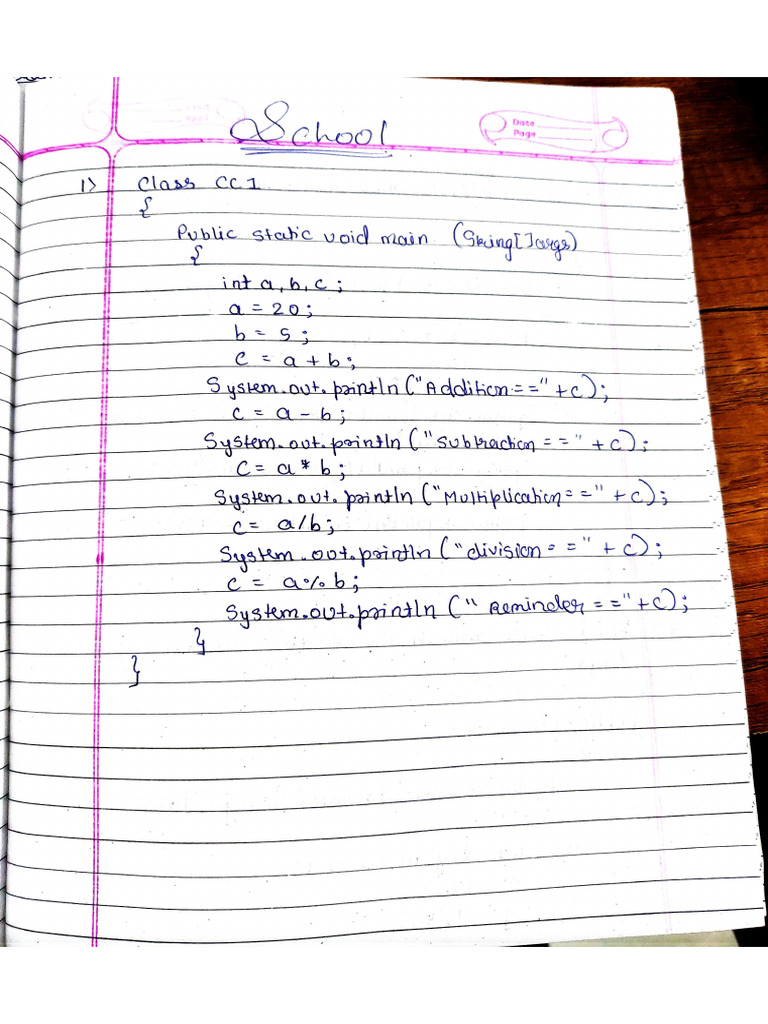 School
Date
Page
1> Class CC1
{
Public static void main (String[]args)
{
int a, b, c ;
a = 20 ;
b = 5 ;
c = a + b ;
System.out.println ("Addition = =" + c) ;
c = a - b ;
System.out.println ("Subtraction = =" + c) ;
C = a * b ;
System.out.println ("Multiplication = =" + c) ;
c = a/b ;
System.out.println ("division = =" + c) ;
c = a % b ;
System.out.println (" Reminder = =" + c) ;
}
}